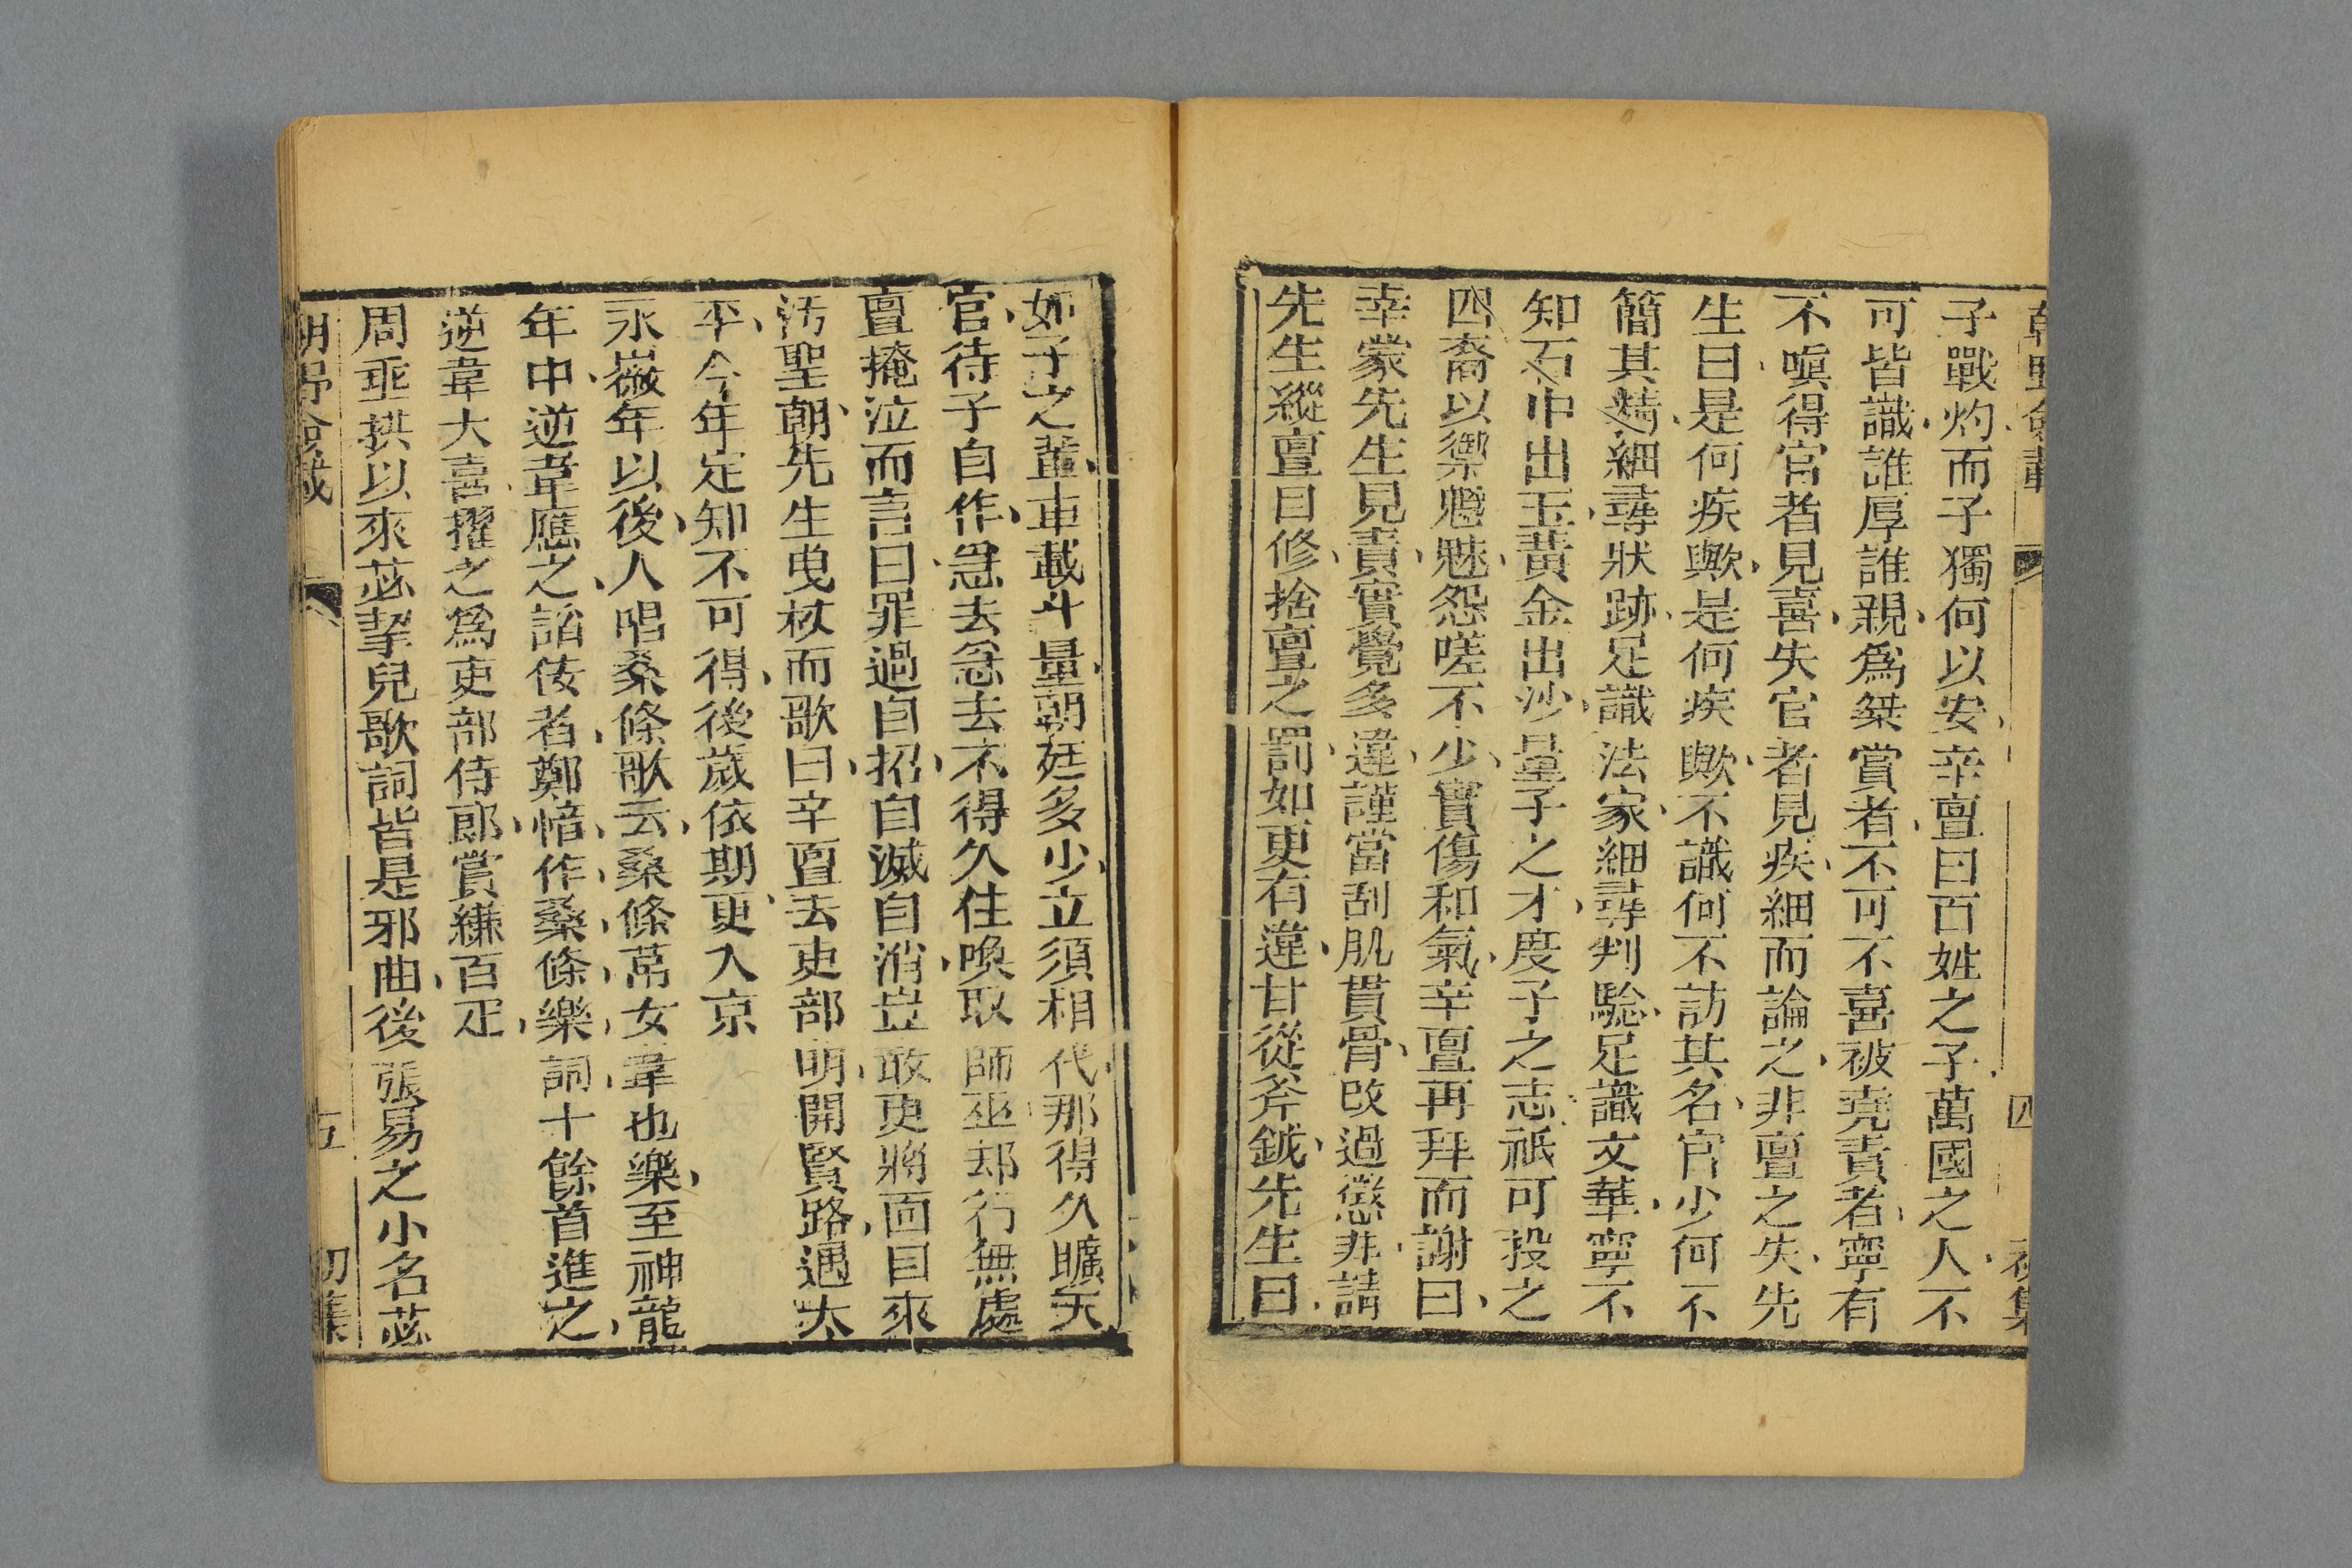 朝野僉載 四 初集
子戰灼而子獨何以安辛亶曰百姓之子萬國之人不
可皆識誰厚誰親爲桀賞者不可不喜被堯責者寧有
不嗔得官者見喜失官者見疾細而論之非亶之失先
生曰是何疾歟是何疾歟不識何不訪其名官少何不
簡其精細尋狀跡足識法家細尋判驗足識文華寧不
知石中出玉黃金出沙量子之才度子之志祇可投之
四裔以禦魑魅怨嗟不少實傷和氣辛亶再拜而謝曰
幸蒙先生見責實覺多違謹當刮肌貫骨改過懲非請
先生縱亶自修捨亶之罰如更有違甘從斧鉞先生曰
如子之輩車載斗量朝廷多少立須相代那得久曠天
官待子自作急去急去不得久住喚取師巫却行無處
亶掩泣而言曰罪過自招自滅自消豈敢更將面目來
汚聖朝先生曳杖而歌曰辛亶去吏部明開賢路遇太
平今年定知不可得後歲依期更入京
永徽年以後人唱桑條歌云桑條𦬆女韋也樂至神龍
年中逆韋應之諂佞者鄭愔作桑條樂詞十餘首進之
逆韋大喜擢之爲吏部侍郎賞縑百疋
周垂拱以來苾挐兒歌詞皆是邪曲後張易之小名苾
朝野僉載 五 初集